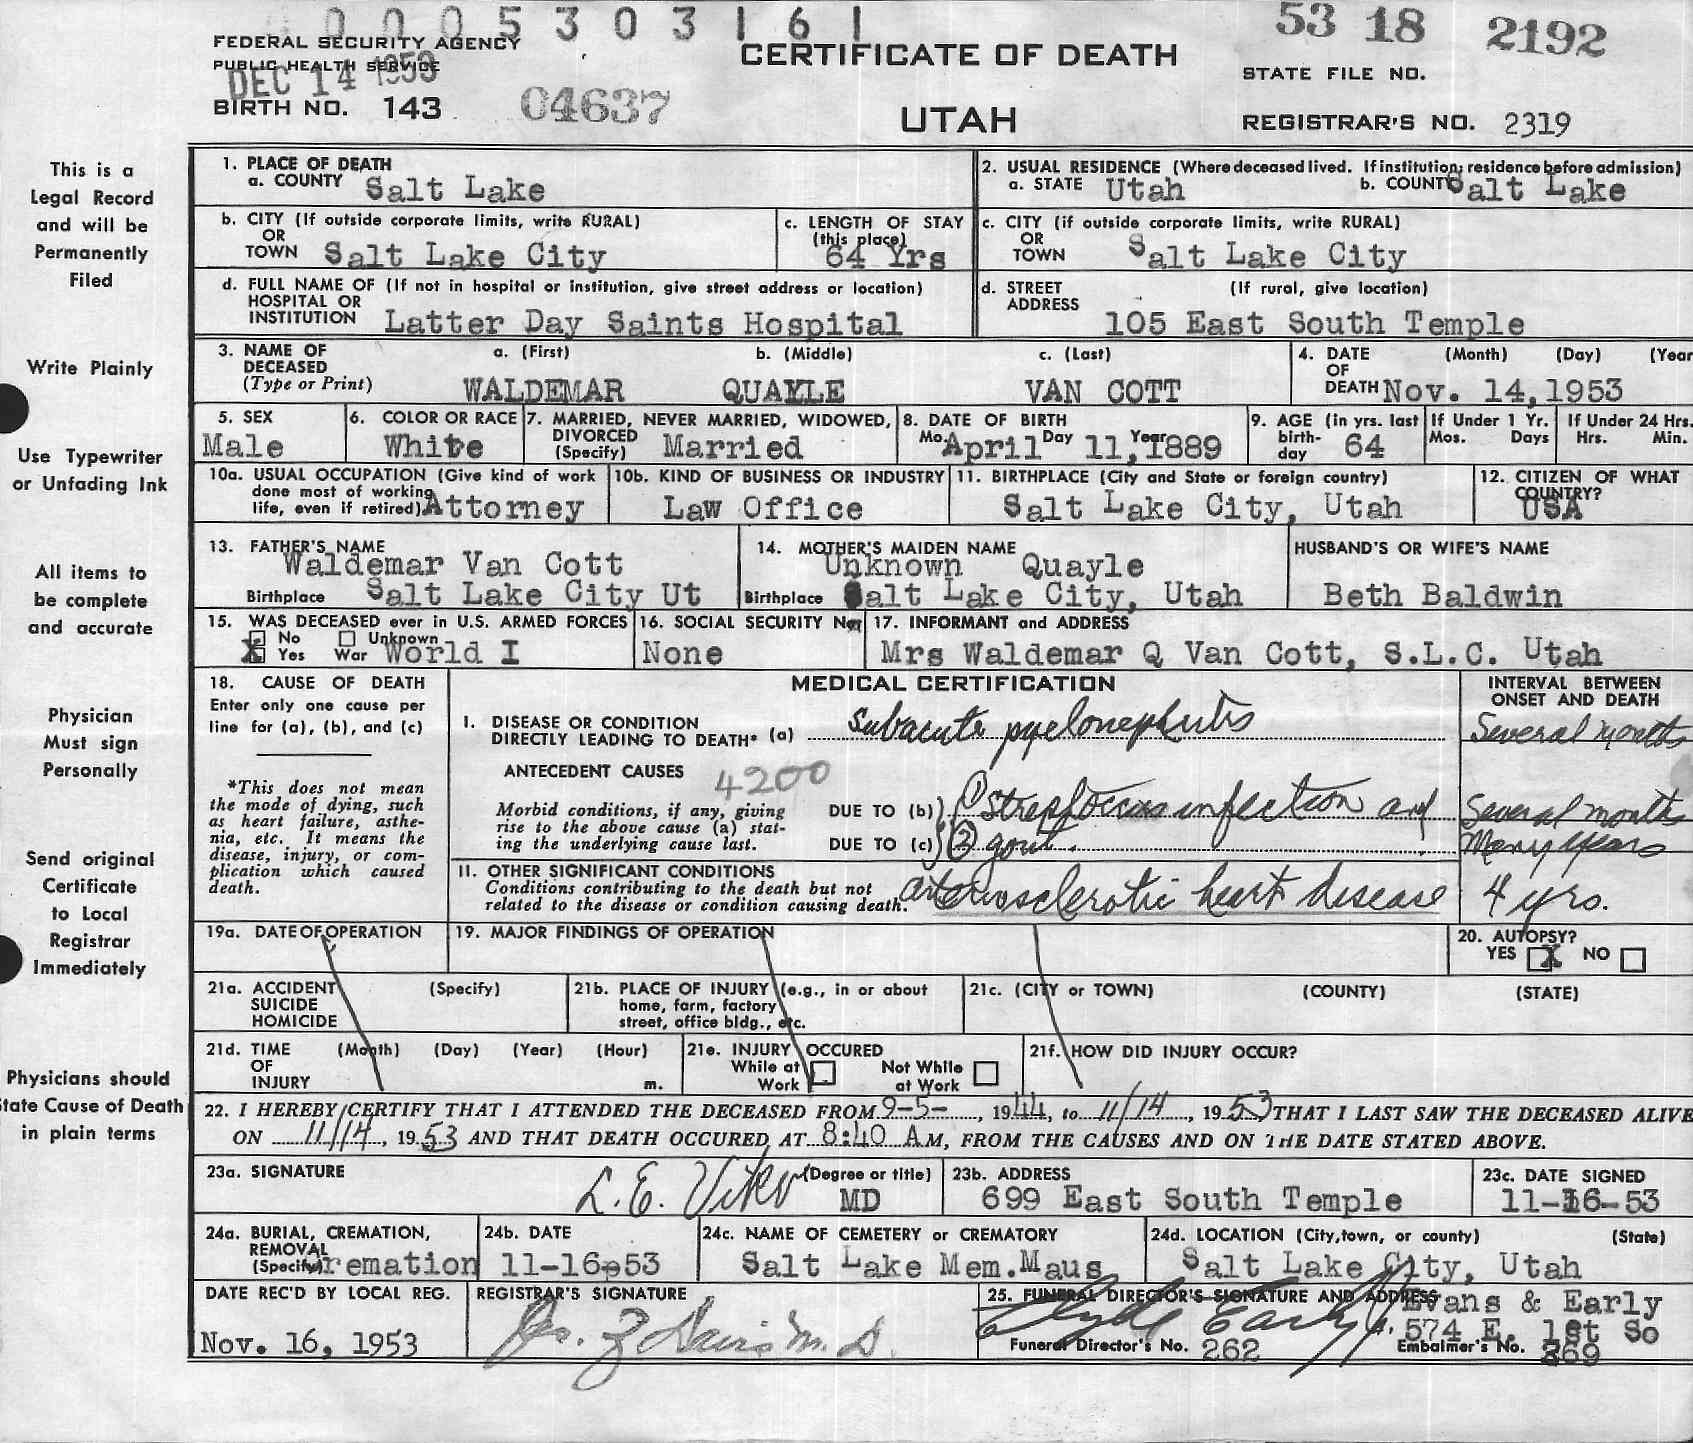 0005303161
53 18 2192
FEDERAL SECURITY AGENCY
PUBLIC HEALTH SERVICE
DEC 14 1953
BIRTH NO. 143
04637
CERTIFICATE OF DEATH
UTAH
STATE FILE NO.
REGISTRAR'S NO. 2319
This is a
Legal Record
and will be
Permanently
Filed
Write Plainly
Use Typewriter
or Unfading Ink
All items to
be complete
and accurate
Physician
Must sign
Personally
Send original
Certificate
to Local
Registrar
Immediately
Physicians should
tate Cause of Death
in plain terms
1. PLACE OF DEATH
a. COUNTY Salt Lake
2. USUAL RESIDENCE (Where deceased lived. If institution; residence before admission)
a. STATE Utah b. COUNTY Salt Lake
b. CITY (If outside corporate limits, write RURAL)
OR
TOWN Salt Lake City
c. LENGTH OF STAY
(this place)
64 Yrs
c. CITY (if outside corporate limits, write RURAL)
OR
TOWN Salt Lake City
d. FULL NAME OF (If not in hospital or institution, give street address or location)
HOSPITAL OR
INSTITUTION Latter Day Saints Hospital
d. STREET (If rural, give location)
ADDRESS 105 East South Temple
3. NAME OF a. (First) b. (Middle) c. (Last)
DECEASED
(Type or Print) WALDEMAR QUAYLE VAN COTT
4. DATE (Month) (Day) (Year
OF
DEATH Nov. 14, 1953
5. SEX
Male
6. COLOR OR RACE
White
7. MARRIED, NEVER MARRIED, WIDOWED,
DIVORCED
(Specify) Married
8. DATE OF BIRTH
Mo. April Day 11, Year 1889
9. AGE (in yrs. last
birth-
day 64
If Under 1 Yr.
Mos. Days
If Under 24 Hrs.
Hrs. Min.
10a. USUAL OCCUPATION (Give kind of work
done most of working
life, even if retired) Attorney
10b. KIND OF BUSINESS OR INDUSTRY
Law Office
11. BIRTHPLACE (City and State or foreign country)
Salt Lake City, Utah
12. CITIZEN OF WHAT
COUNTRY?
USA
13. FATHER'S NAME
Waldemar Van Cott
Birthplace Salt Lake City Ut
14. MOTHER'S MAIDEN NAME
Unknown Quayle
Birthplace Salt Lake City, Utah
HUSBAND'S OR WIFE'S NAME
Beth Baldwin
15. WAS DECEASED ever in U.S. ARMED FORCES
No Unknown
X Yes War World I
16. SOCIAL SECURITY No.
None
17. INFORMANT and ADDRESS
Mrs Waldemar Q Van Cott, S.L.C. Utah
18. CAUSE OF DEATH
Enter only one cause per
line for (a), (b), and (c)
*This does not mean
the mode of dying, such
as heart failure, asthe-
nia, etc. It means the
disease, injury, or com-
plication which caused
death.
MEDICAL CERTIFICATION
INTERVAL BETWEEN
ONSET AND DEATH
I. DISEASE OR CONDITION
DIRECTLY LEADING TO DEATH* (a) Subacute pyelonephritis Several months
ANTECEDENT CAUSES 4200
Morbid conditions, if any, giving
rise to the above cause (a) stat-
ing the underlying cause last.
DUE TO (b) (1) Streptococcus infection and Several months
DUE TO (c) (2) gout. Many years
11. OTHER SIGNIFICANT CONDITIONS
Conditions contributing to the death but not
related to the disease or condition causing death.
arteriosclerotic heart disease 4 yrs.
19a. DATE OF OPERATION
19. MAJOR FINDINGS OF OPERATION
20. AUTOPSY?
YES X NO
21a. ACCIDENT (Specify)
SUICIDE
HOMICIDE
21b. PLACE OF INJURY (e.g., in or about
home, farm, factory
street, office bldg., etc.
21c. (CITY or TOWN) (COUNTY) (STATE)
21d. TIME (Month) (Day) (Year) (Hour)
OF
INJURY m.
21e. INJURY OCCURED
While at Work Not While at Work
21f. HOW DID INJURY OCCUR?
22. I HEREBY CERTIFY THAT I ATTENDED THE DECEASED FROM 9-5-, 1944, to 11/14, 1953 THAT I LAST SAW THE DECEASED ALIVE
ON 11/14, 1953 AND THAT DEATH OCCURED AT 8:40 AM, FROM THE CAUSES AND ON THE DATE STATED ABOVE.
23a. SIGNATURE (Degree or title)
L. E. Viko MD
23b. ADDRESS
699 East South Temple
23c. DATE SIGNED
11-16-53
24a. BURIAL, CREMATION,
REMOVAL
(Specify) Cremation
24b. DATE
11-16-53
24c. NAME OF CEMETERY or CREMATORY
Salt Lake Mem. Maus
24d. LOCATION (City, town, or county) (State)
Salt Lake City, Utah
DATE REC'D BY LOCAL REG.
Nov. 16, 1953
REGISTRAR'S SIGNATURE
25. FUNERAL DIRECTOR'S SIGNATURE AND ADDRESS
Clyde Early
Evans & Early
574 E. 1st So
Funeral Director's No. 262
Embalmer's No.